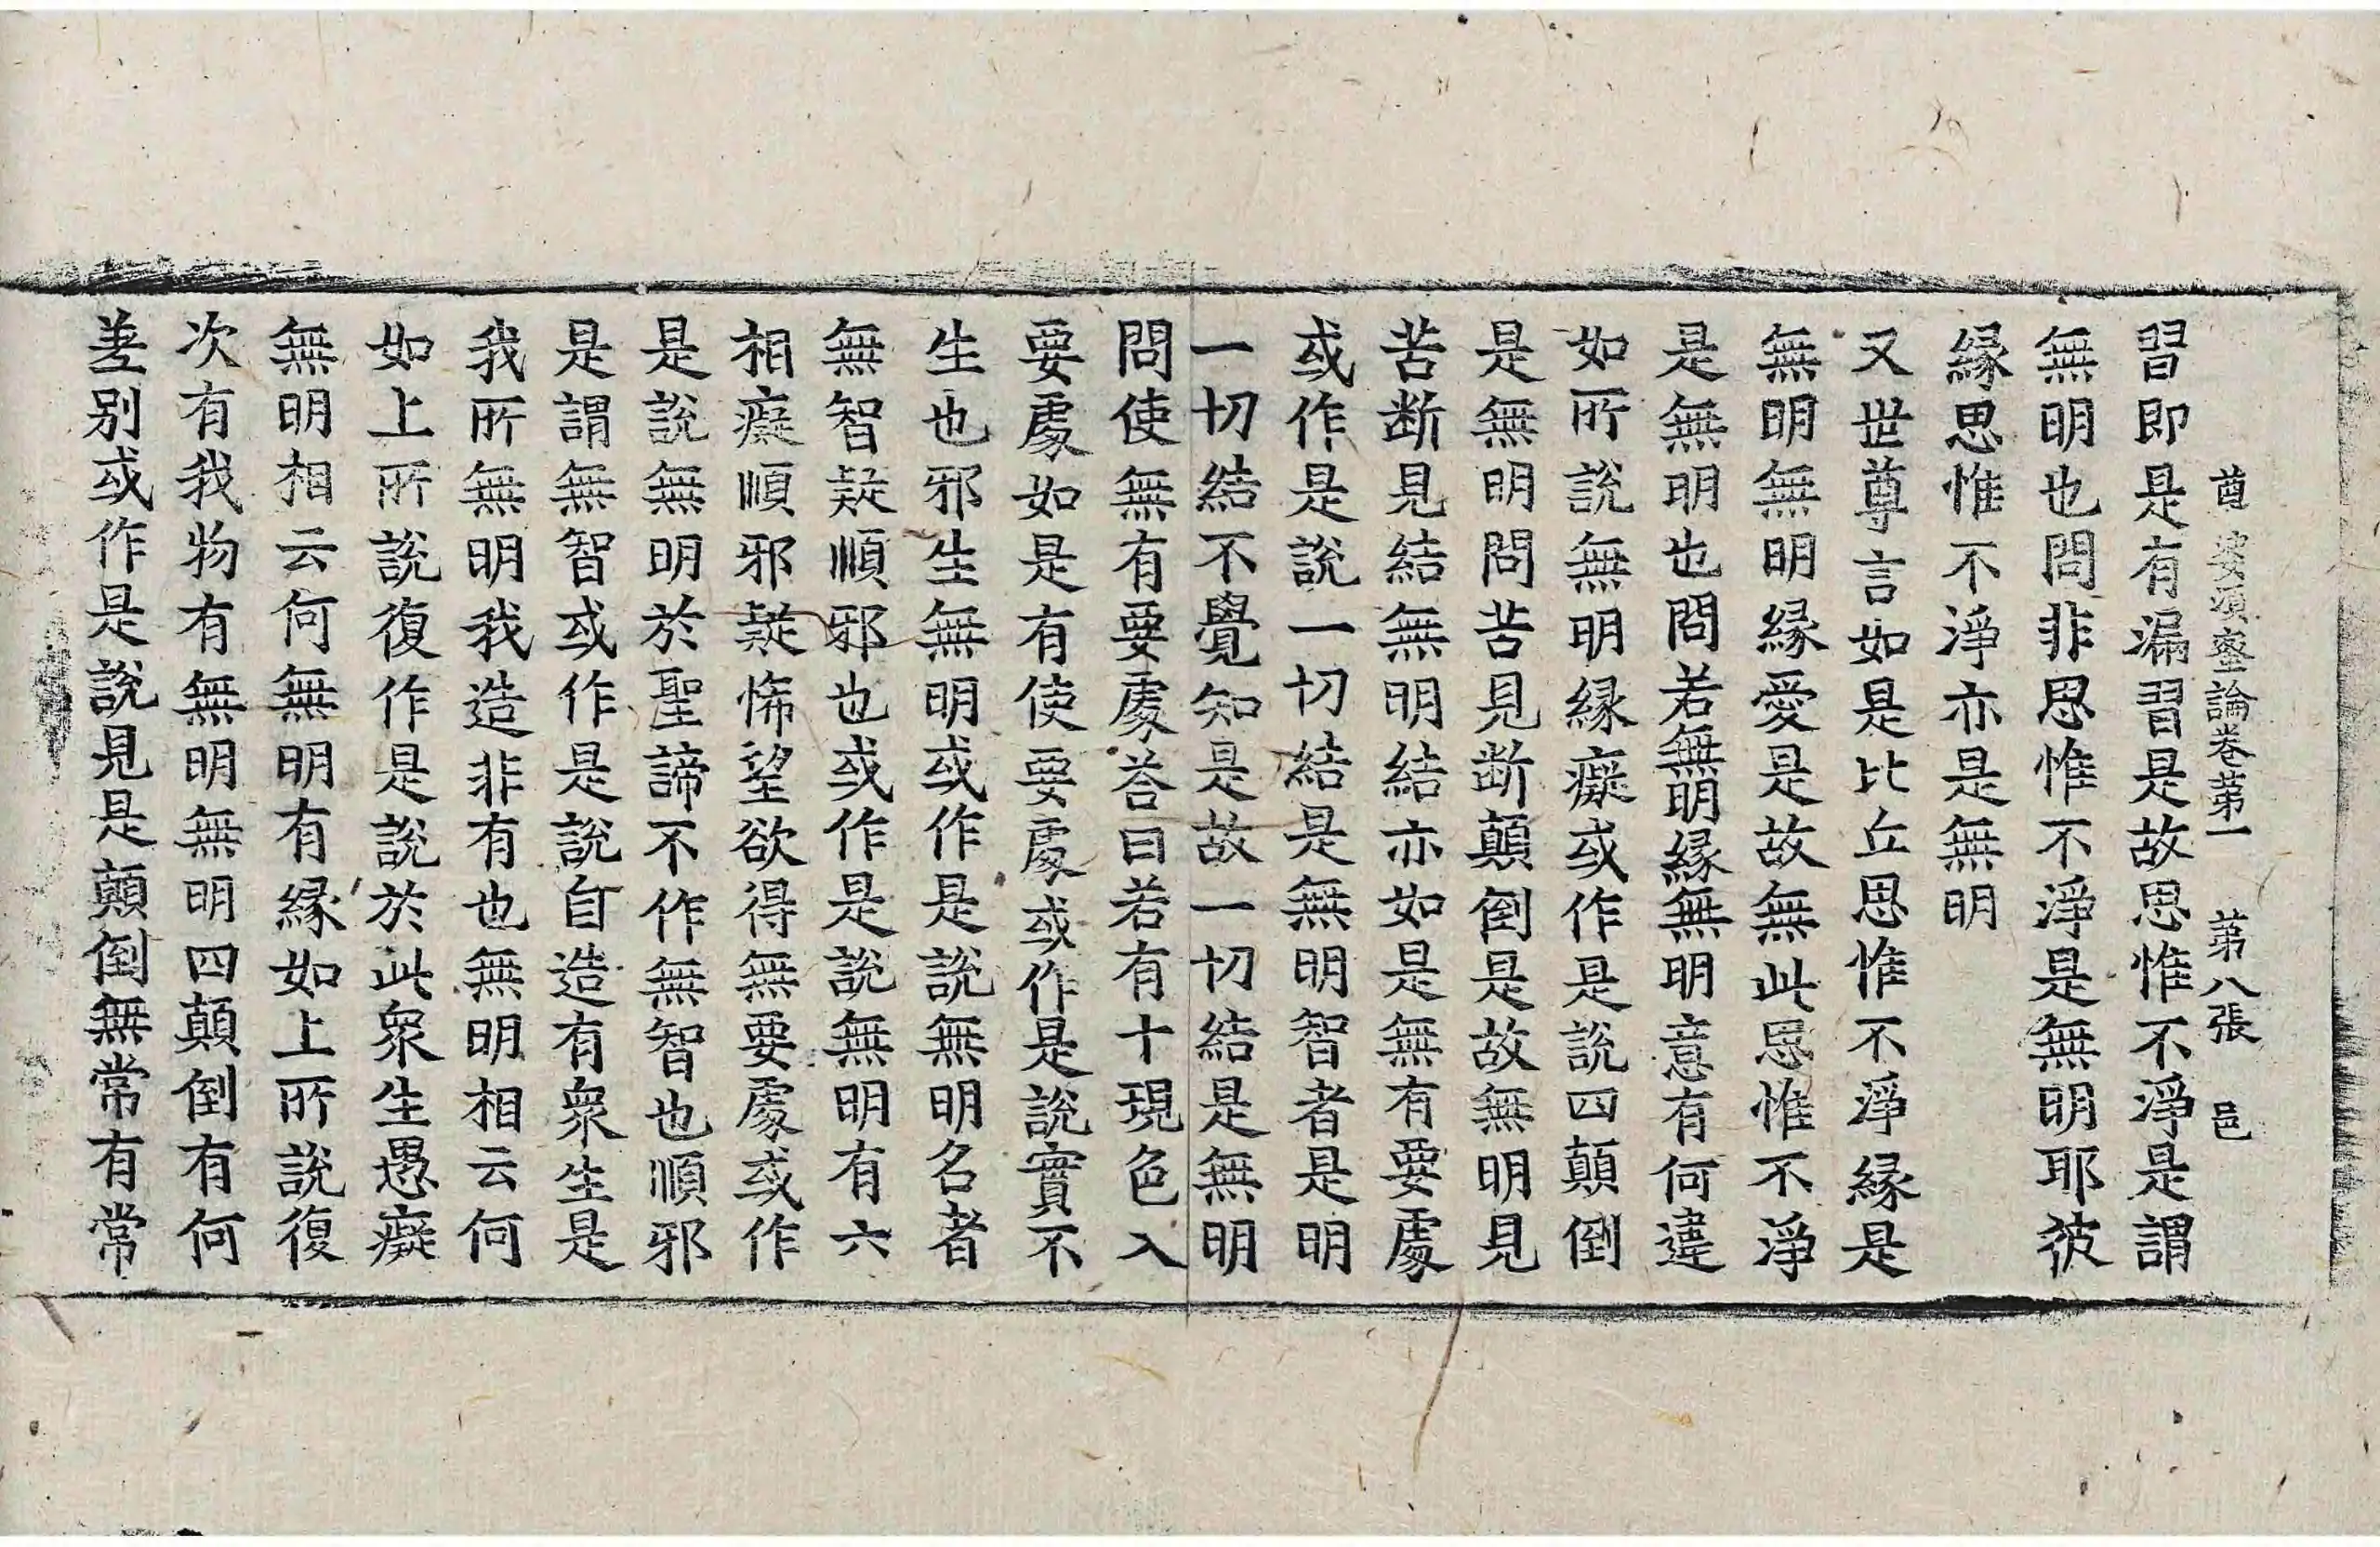 尊婆須蜜論卷第一　第八張　邑
習即是有漏習是故思惟不淨是謂
無明也問非思惟不淨是無明耶彼
緣思惟不淨亦是無明
又世尊言如是比丘思惟不淨緣是
無明無明緣愛是故無此思惟不淨
是無明也問若無明緣無明意有何違
如所說無明緣癡或作是說四顛倒
是無明問苦見断顛倒是故無明見
苦断見結無明結亦如是無有要處
或作是說一切結是無明智者是明
一切結不覺知是故一切結是無明
問使無有要處荅曰若有十現色入
要處如是有使要處或作是說實不
生也邪生無明或作是說無明名者
無智疑順邪也或作是說無明有六
相癡順邪疑悕望欲得無要處或作
是說無明於聖諦不作無智也順邪
是謂無智或作是說自造有衆生是
我所無明我造非有也無明相云何
如上所說復作是說於此衆生愚癡
無明相云何無明有緣如上所說復
次有我物有無明無明四顛倒有何
差別或作是說見是顛倒無常有常